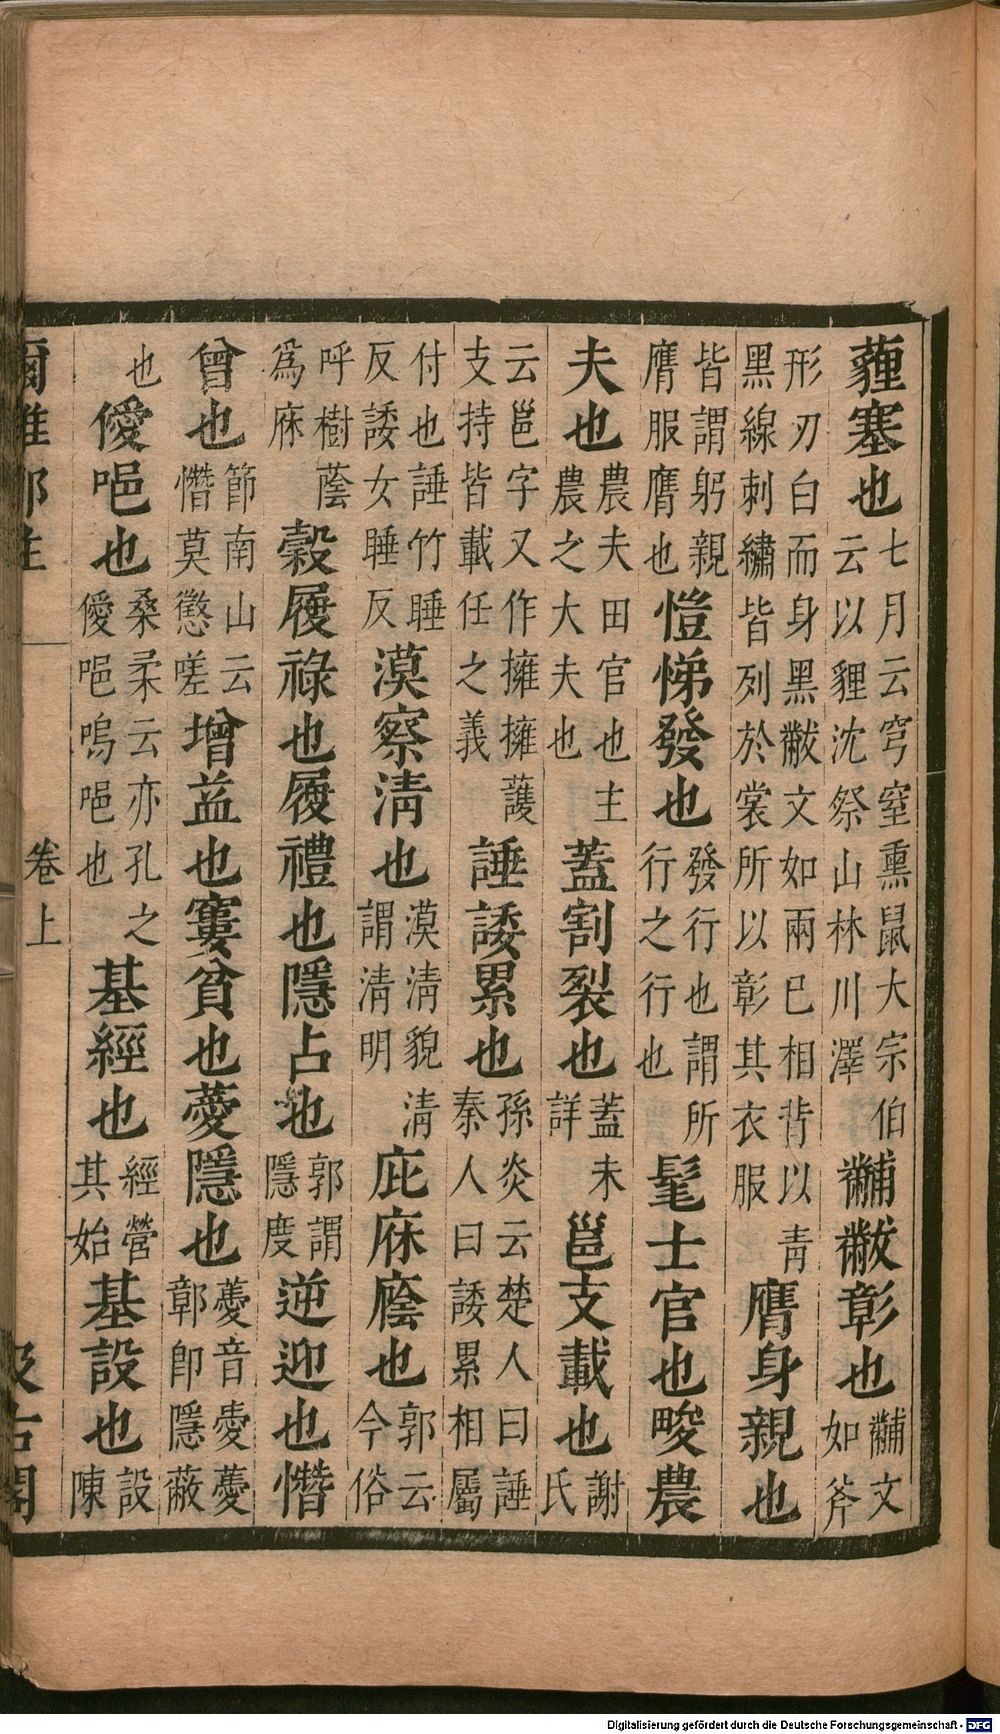 薶塞也七月云穹窒熏鼠大宗伯云以貍沈祭山林川澤黼黻彰也黼文如斧
形刃白而身黑黻文如兩巳相背以青黑線刺繡皆列於裳所以彰其衣服膺身親也
皆謂躬親膺服膺也愷悌發也發行也謂所行之行也髦士官也畯農
夫也農夫田官也主農之大夫也蓋割裂也蓋未詳邕支載也謝氏
云邕字又作擁擁護支持皆載任之義諈諉累也孫炎云楚人曰諈秦人曰諉累相屬
付也諈竹睡反諉女睡反漠察清也漠清貌清謂清明庇庥廕也郭云今俗
呼樹蔭為庥穀履祿也履禮也隱占也郭謂隱度逆迎也憯
曾也節南山云憯莫懲嗟增益也窶貧也薆隱也薆音愛薆郭卽隱蔽
也僾唈也桑柔云亦孔之僾唈嗚唈也基經也經營其始基設也設陳
爾雅鄭注 卷上 汲古閣
Digitalisierung gefördert durch die Deutsche Forschungsgemeinschaft - DFG